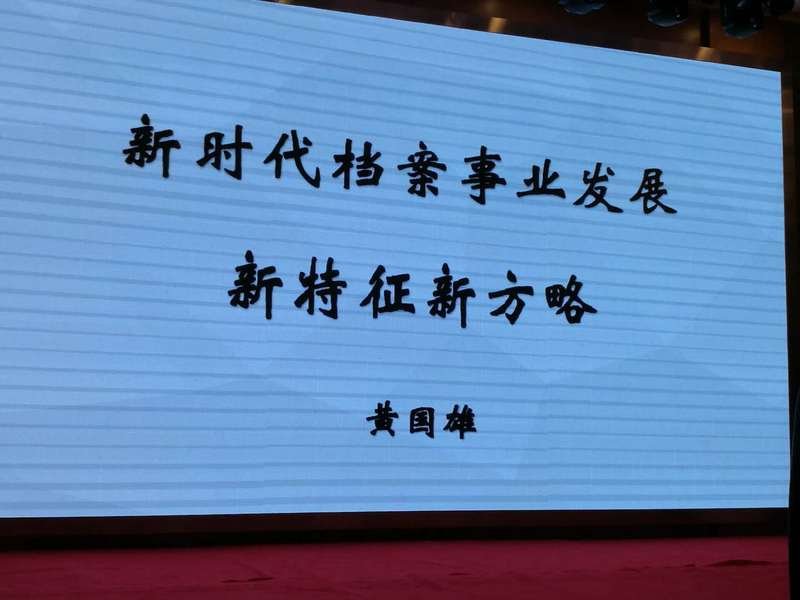 新时代档案事业发展
新特征新方略
黄国雄